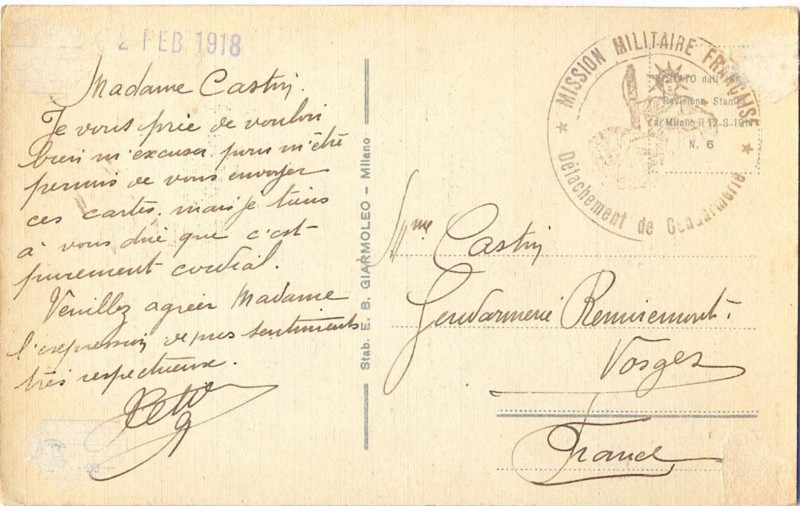 2 FEB 1918
Madame Castin.
Je vous prie de vouloir
bien m'excuser pour m'être
permis de vous envoyer
ces cartes, mais je tiens
à vous dire que c'est
purement cordial.
Veuillez agréer Madame
l'expression de mes sentiments
très respectueux.
Stab. E. B. GIARMOLEO – Milano
★ MISSION MILITAIRE FRANÇAISE ★
Détachement de Gendarmerie
Revisione Stampa
di Milano il 12-8-191
N. 6
Mme Castin
Gendarmerie Remiremont
Vosges
France